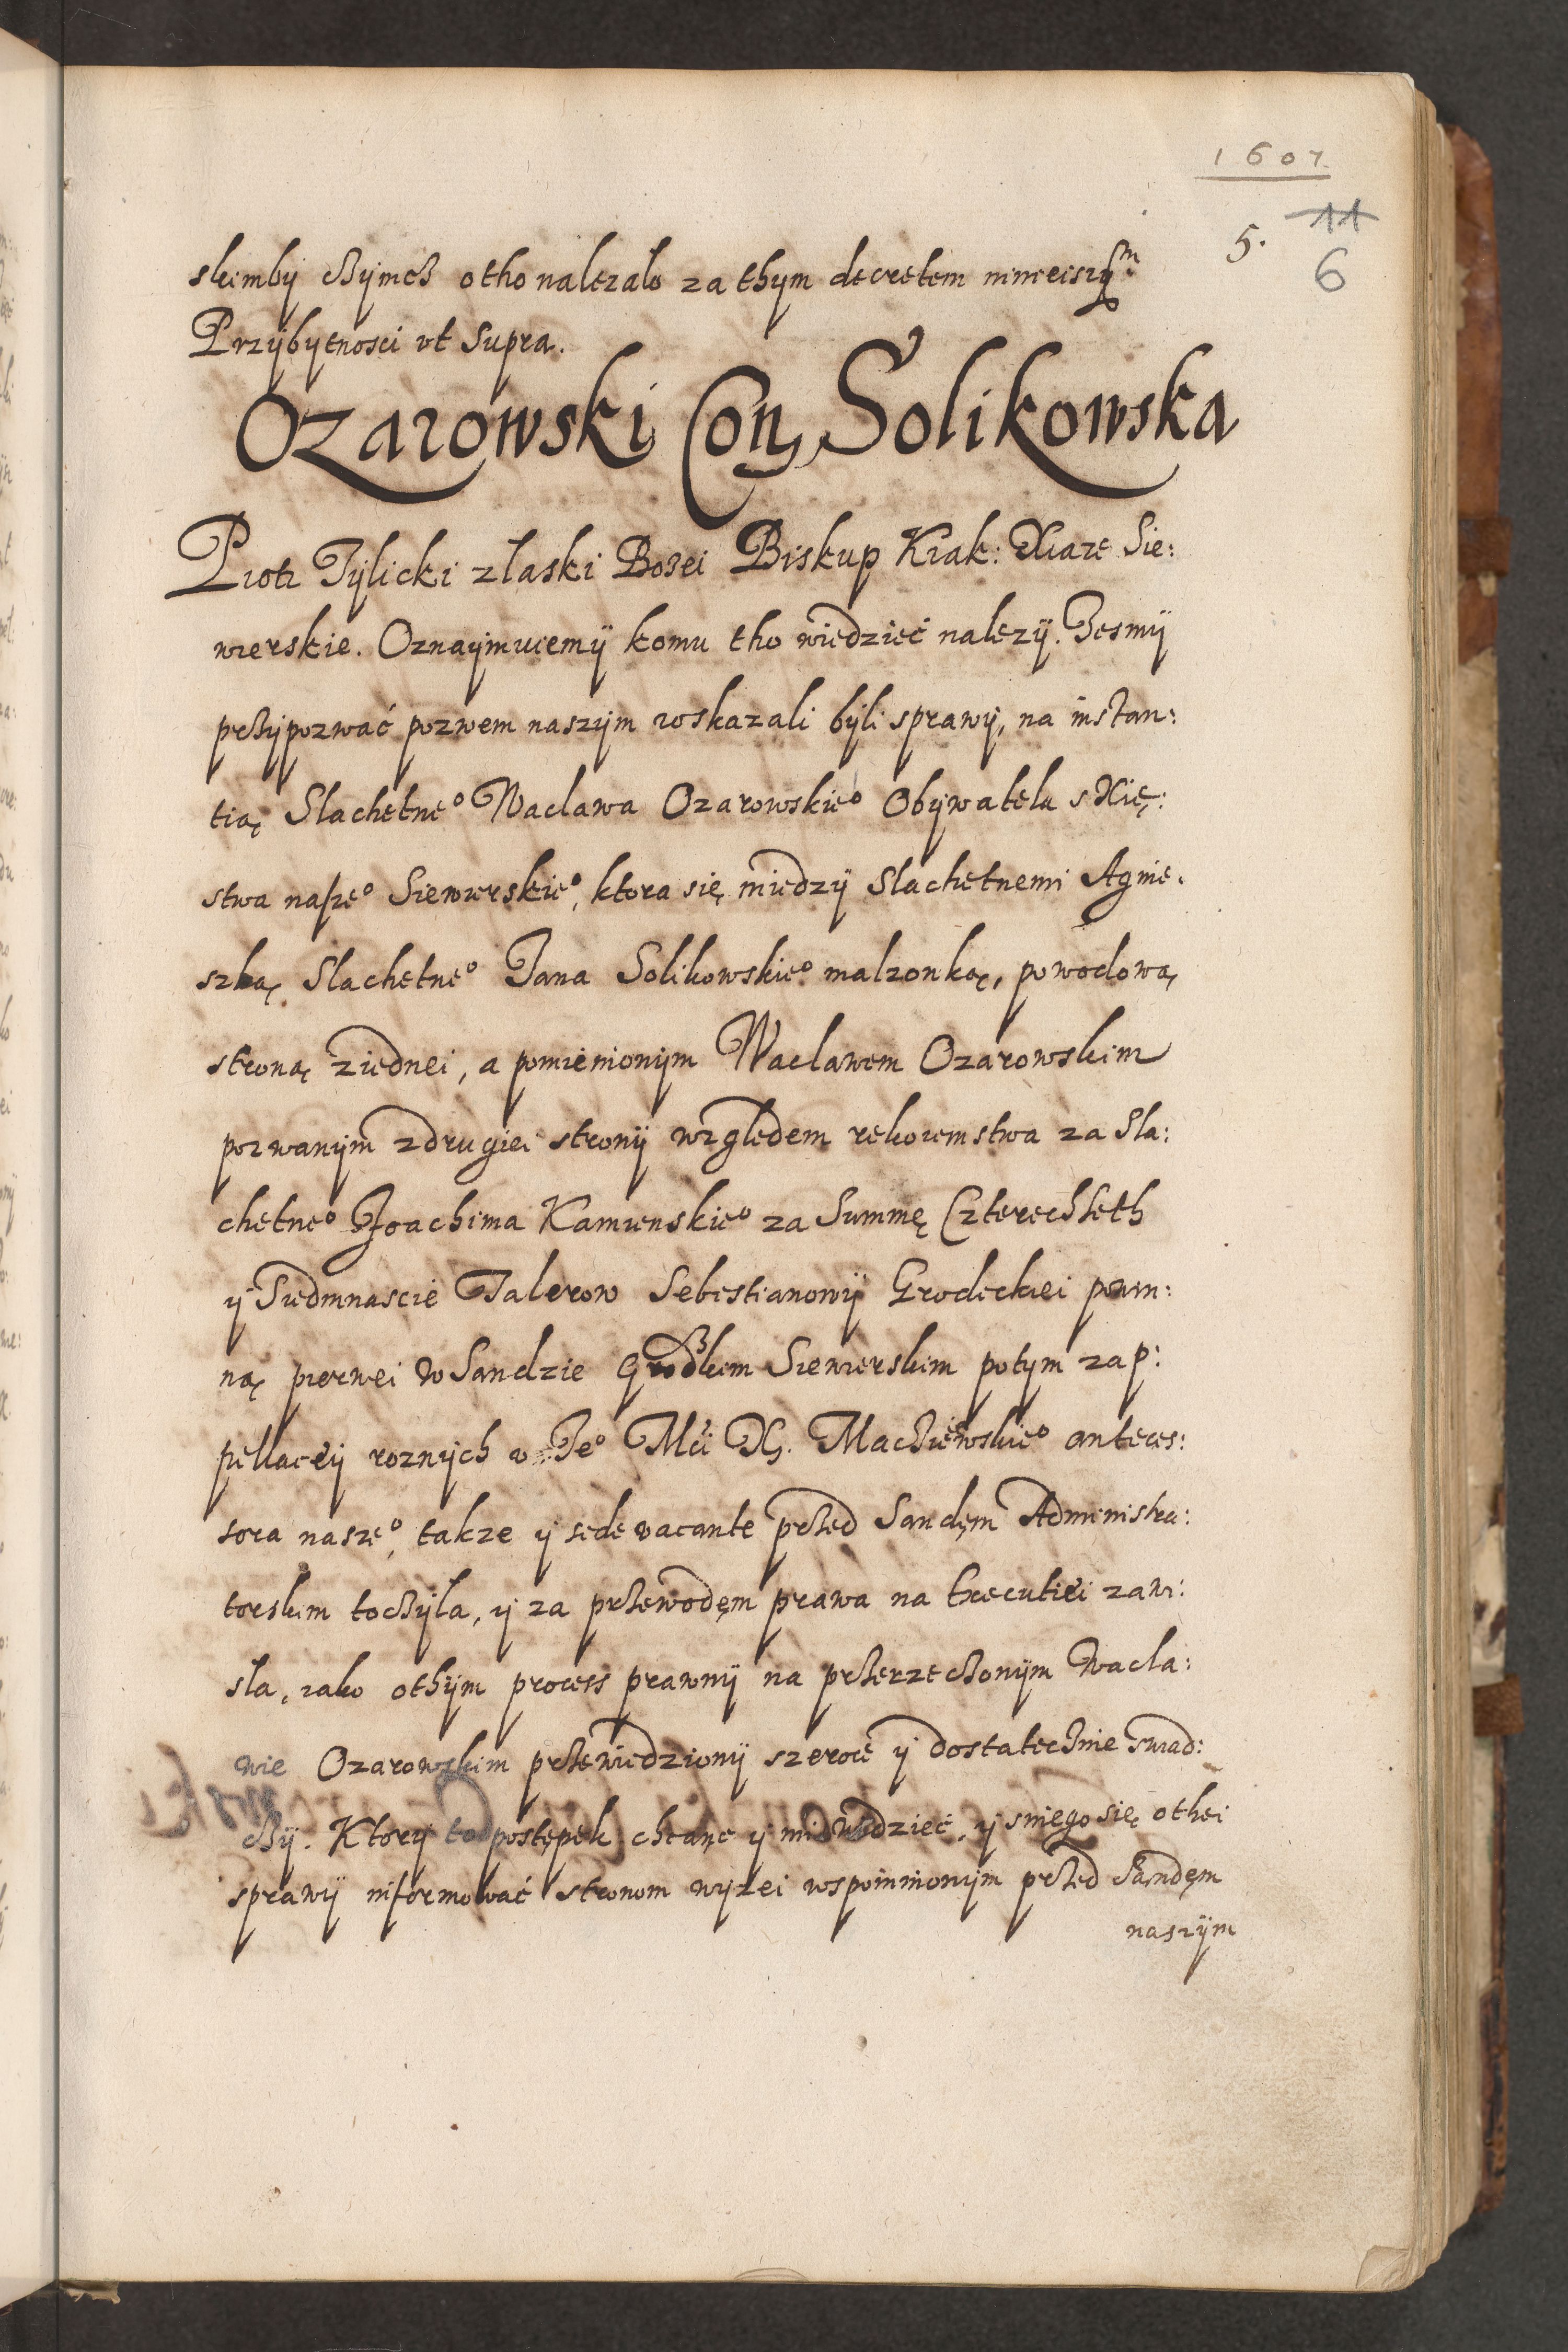 1607.
5.
11
6
skimby czymcz otho nalezalo za thym decretem ninieiszym
Przybytnosci ut Supra.
Ozarowski Con Solikowska
Piotr Tylicki z laski Bozei Biskup Krak: Xiaze Sie:
wierskie. Oznaymuiemy komu tho wiedzieć nalezy. Jesmy
przypozwać pozwem naszym roskazali byli sprawy, na instan:
tią Slachetneo Waclawa Ozarowskieo Obywatela s Xię:
stwa naszeo Siewierskieo, ktora się miedzy Slachetnemi Agnie.
szką Slachetneo Jana Solikowskieo malzonką, powodową
stroną ziednei, a pomienionym Waclawem Ozarowskim
pozwanym zdrugiei strony względem rekoiemstwa za Sla:
chetneo Joachima Kamienskieo za Summę Czterechseth
y Siedmnascie Talerow Sebestianowy Grodeckiei powin:
ną pierwei w Sandzie Grodzkiem Siewierskim potym zap:
pellacyi roznych v Jeo Mći X. Macziewskieo anteces:
sora naszeo, takze y sede vacante przed Sandęm Administra:
torskim toczyla, y za przewodęm prawa na Executiei zawi:
sla, iako othym process prawny na przerzeczonym Wacla:
wie Ozarowskim przewiedziony szeroce y dostatecznie swiad:
czy. Ktory to postępek chcąc y mi widzieć, y sniego się othei
sprawy informować stronom wyzei wspomnionym przed Sandęm
naszym